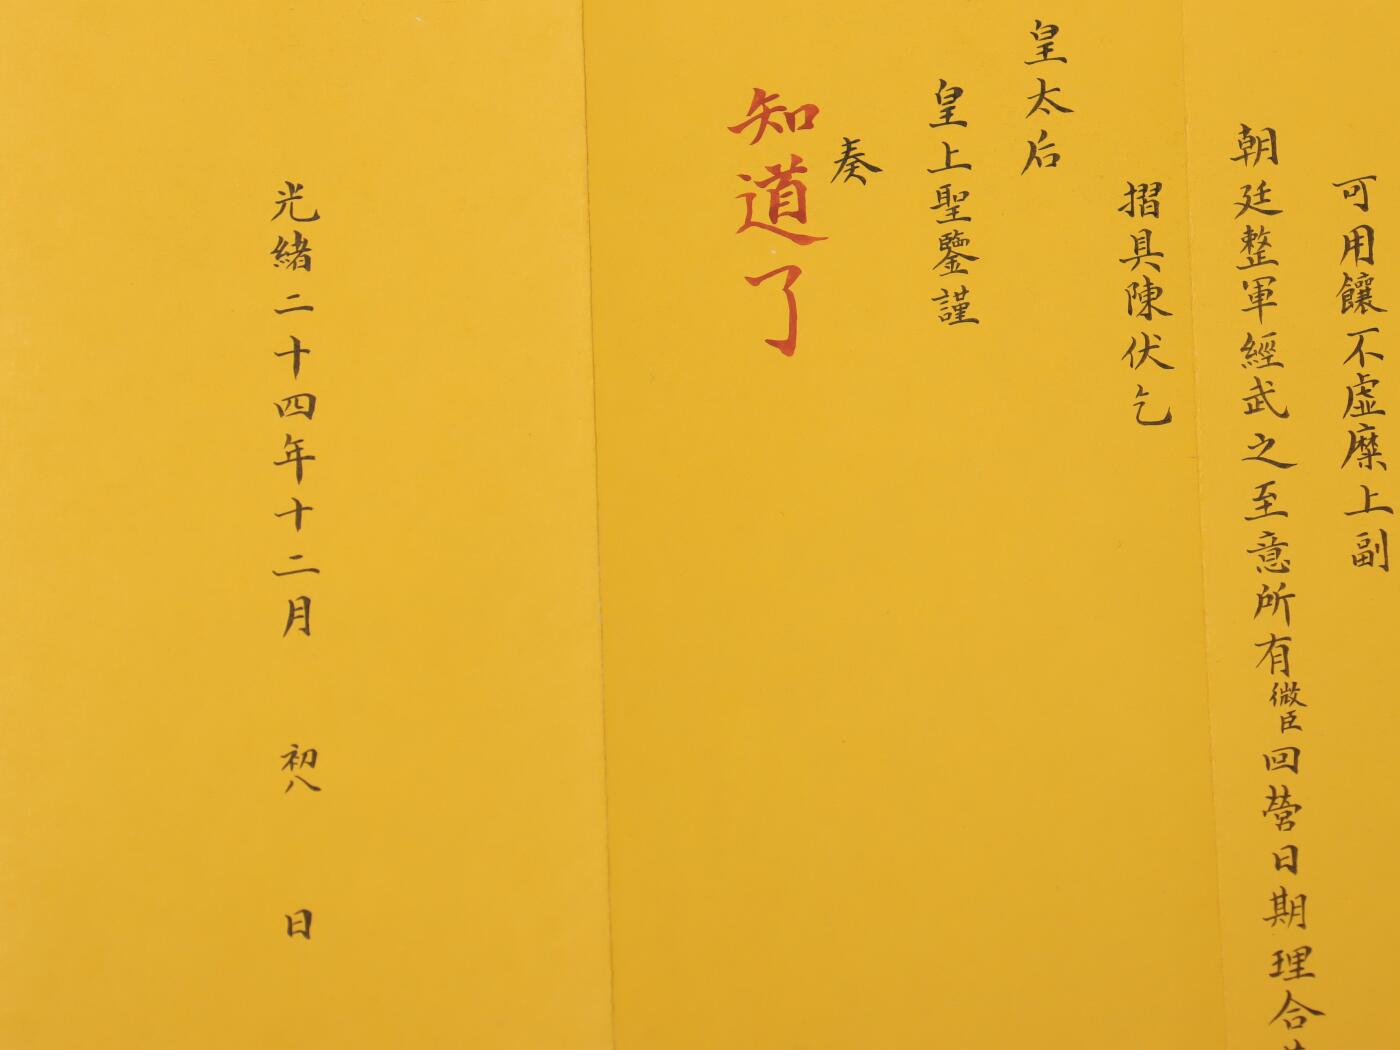 可用饟不虛糜上副
朝廷整軍經武之至意所有微臣回營日期理合
摺具陳伏乞
皇太后
皇上聖鑒謹
奏
知道了
光緒二十四年十二月初八日